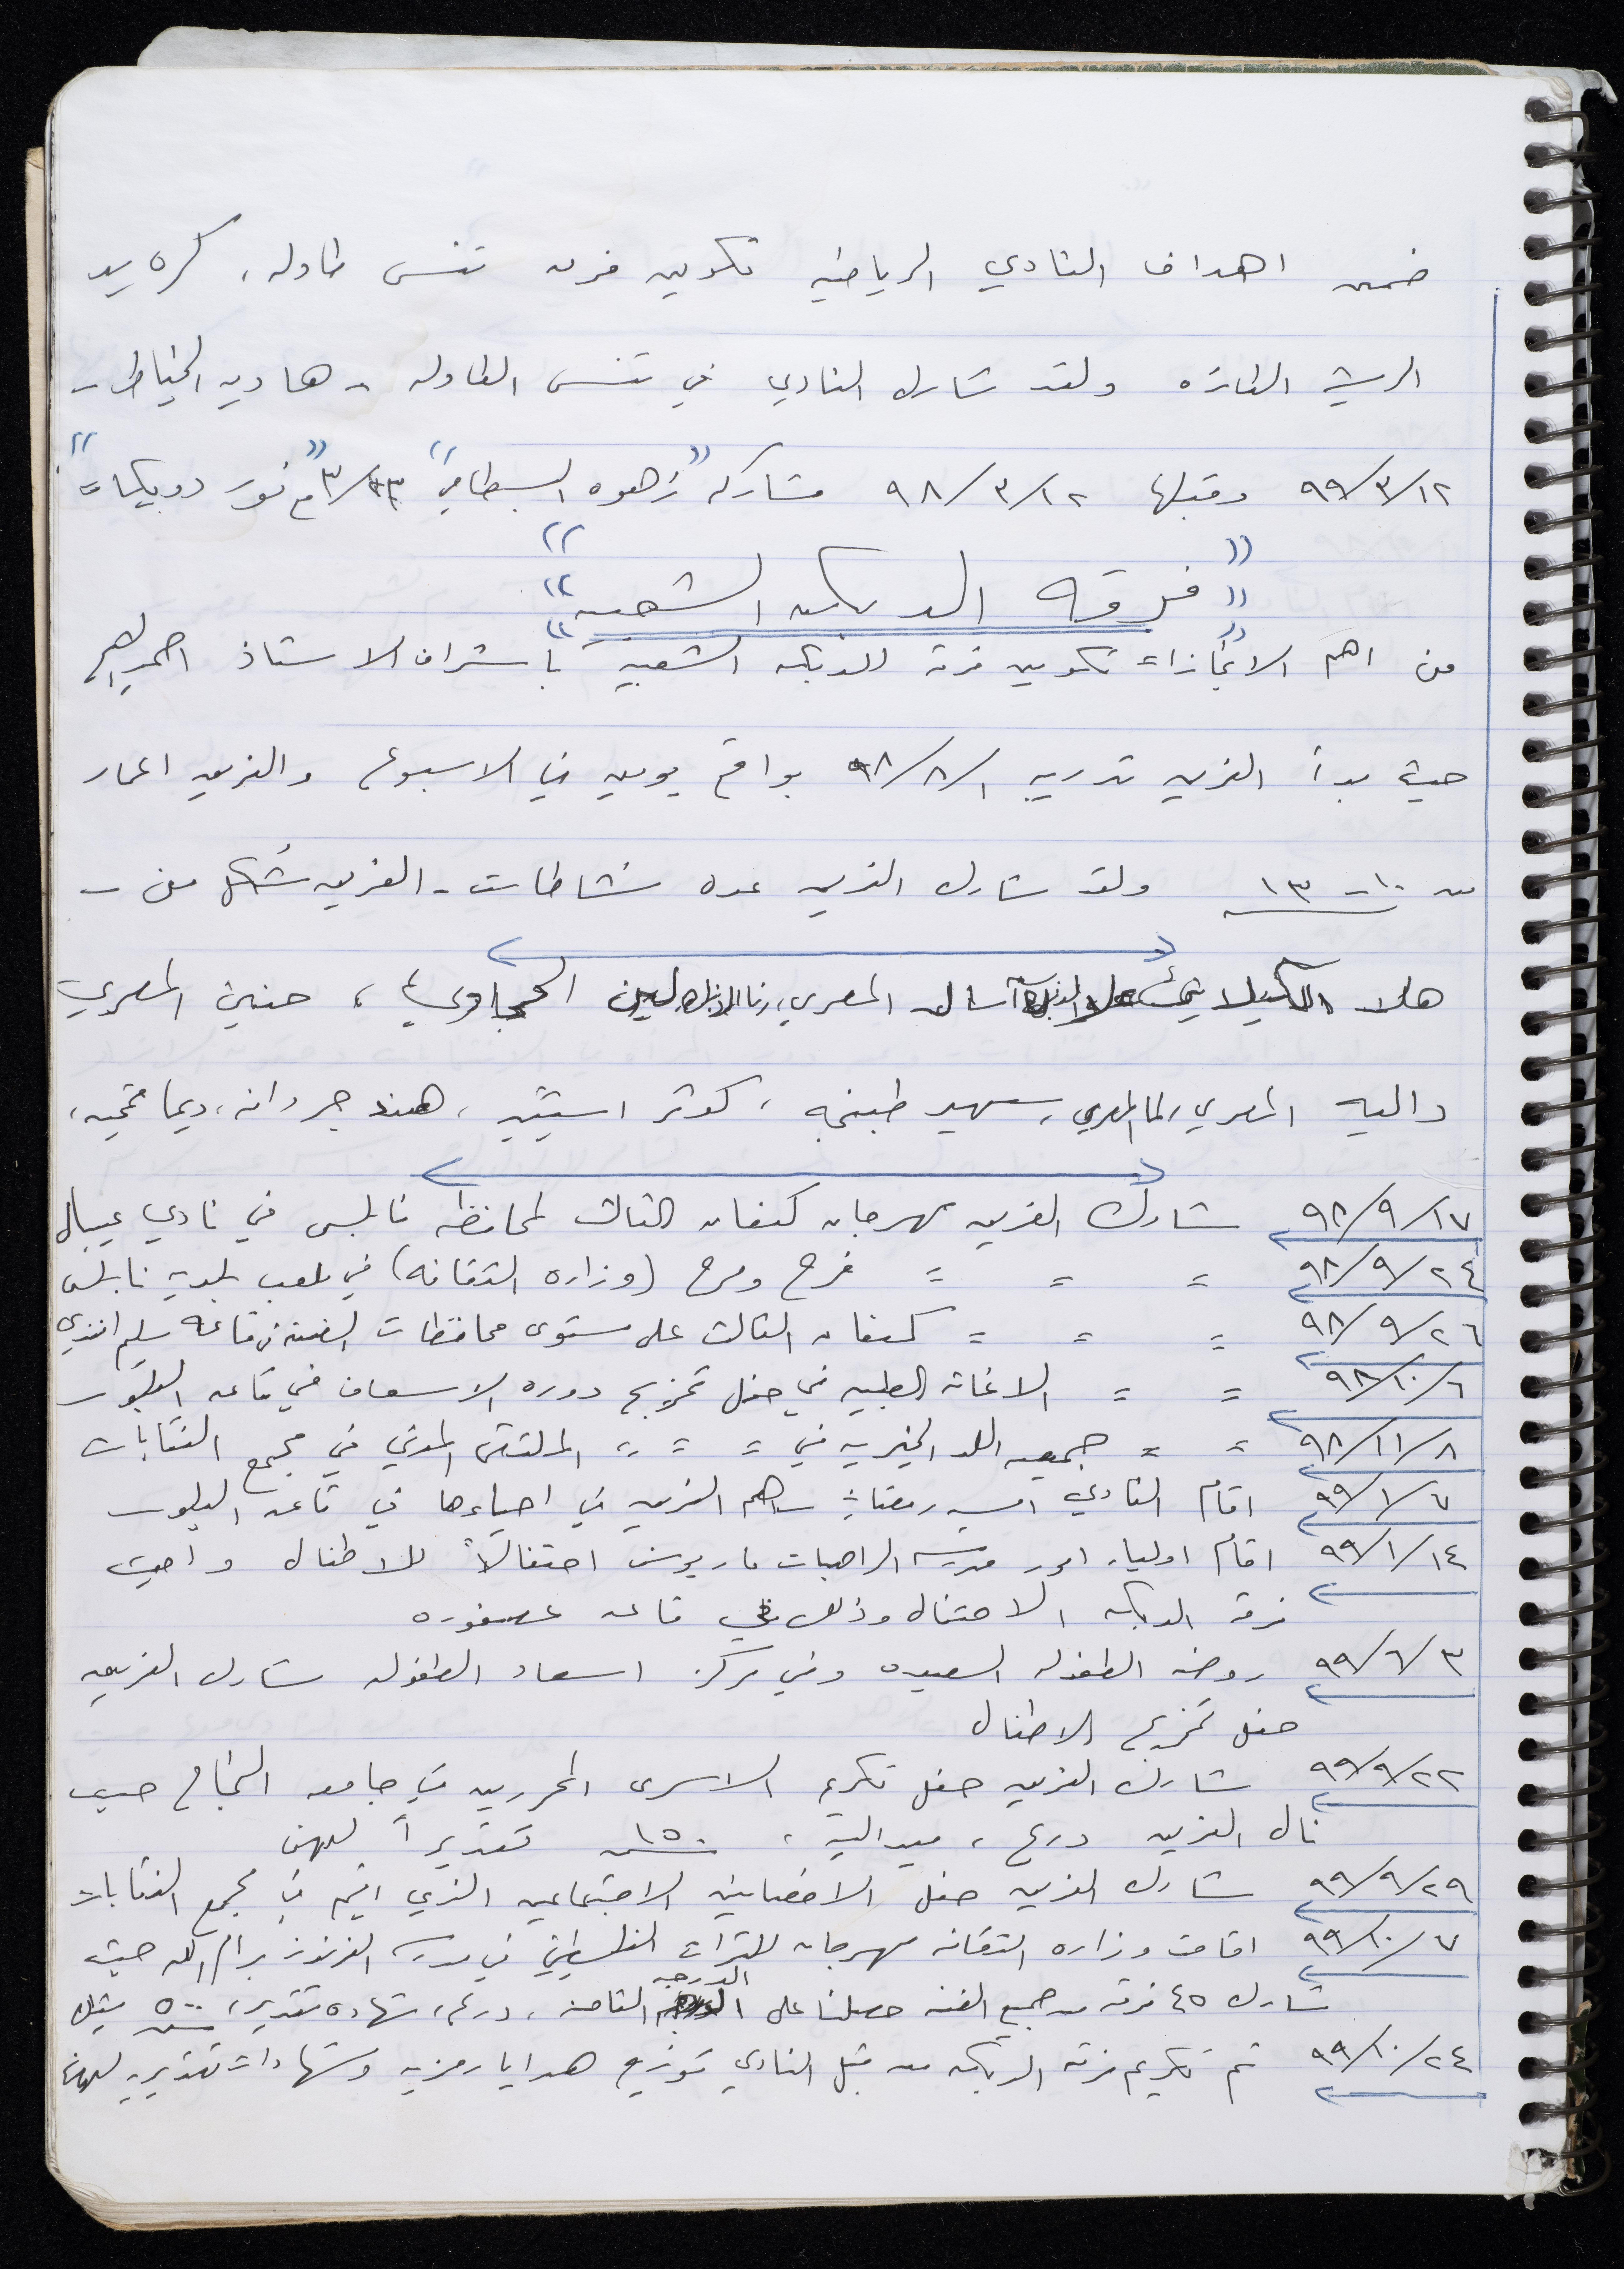 ضمن اهداف النادي الرياضيه تكوين فرق تنس طاوله، كره يد
الريشه الطائره ولقد شارك النادي في تنس الطاوله - هاديه الخياط -
٩٩/٣/١٢ وقبلها ٩٨/٣/١٢ مشاركه "زهوه البسطامي" نور دويكات"
"فرقه الدبكه الشعبيه"
من اهم الانجازات تكوين فرقه للدبكه الشعبيه باشراف الاستاذ احمد
حيث بدأ الفريق تدريبه ٩٨/٨/١ بواقع يومين في الاسبوع والفريق اعمار
من ١٠-١٣ ولقد شارك الفريق عده نشاطات - الفريق شكل من -
هلا الكيلاني آسال المصري، رنا لين الحجاوي، حنين المصري
داليه المصري، لما المصري، سهير طبنجه، كوثر استيتيه، هند جردانه، ديما
٩٨/٩/١٧ شارك الفريق مهرجان كنعان الثالث لمحافظه نابلس في نادي عيبال
٩٨/٩/٢٤ = = = فرح ومرح (وزاره الثقافه) في ملعب بلديه نابلس
٩٨/٩/٢٦ = = = كنعان الثالث على مستوى محافظات الضفه في قاعه سليم افندي
٩٨/١٠/٦ = = الاغاثه الطبيه في حفل تخريج دوره الاسعاف في قاعه البلور
٩٨/١١/٨ = = جمعيه اللد الخيريه في = = = الملتقى الفني في مجمع النقابات
٩٩/١/٧ اقام النادي امسيه رمضانيه ساهم الفريق في احياءها في قاعه البلور
٩٩/١/١٤ اقام اولياء امور مدرسه الراهبات مار يوسف احتفالاً للاطفال واحيت
فرقه الدبكه الاحتفال وذلك في قاعه عصفوره
٩٩/٦/٣ روضه الطفوله السعيده وفي مركز اسعاد الطفوله شارك الفريق
حفل تخريج الاطفال
٩٩/٩/٢٢ شارك الفريق حفل تكريم الاسرى المحررين في جامعه النجاح حيث
نال الفريق درع، ميداليه، ١٥٠ ش تقديراً لهن
٩٩/٩/٢٩ شارك الفريق حفل الاخصائيين الاجتماعيين الذي اقيم في مجمع النقابات
٩٩/١٠/٧ اقامت وزاره الثقافه مهرجان للتراث الفلسطيني في مدرسه الفرندز برام الله حيث
شارك ٤٥ فرقه من جميع الضفه حصلنا على الدرجه الثامنه، درع، شهاده تقدير، ٥٠٠ شيكل
٩٩/١٠/٢٤ تم تكريم فرقه الدبكه من قبل النادي توزيع هدايا رمزيه وشهادات تقديريه لهن